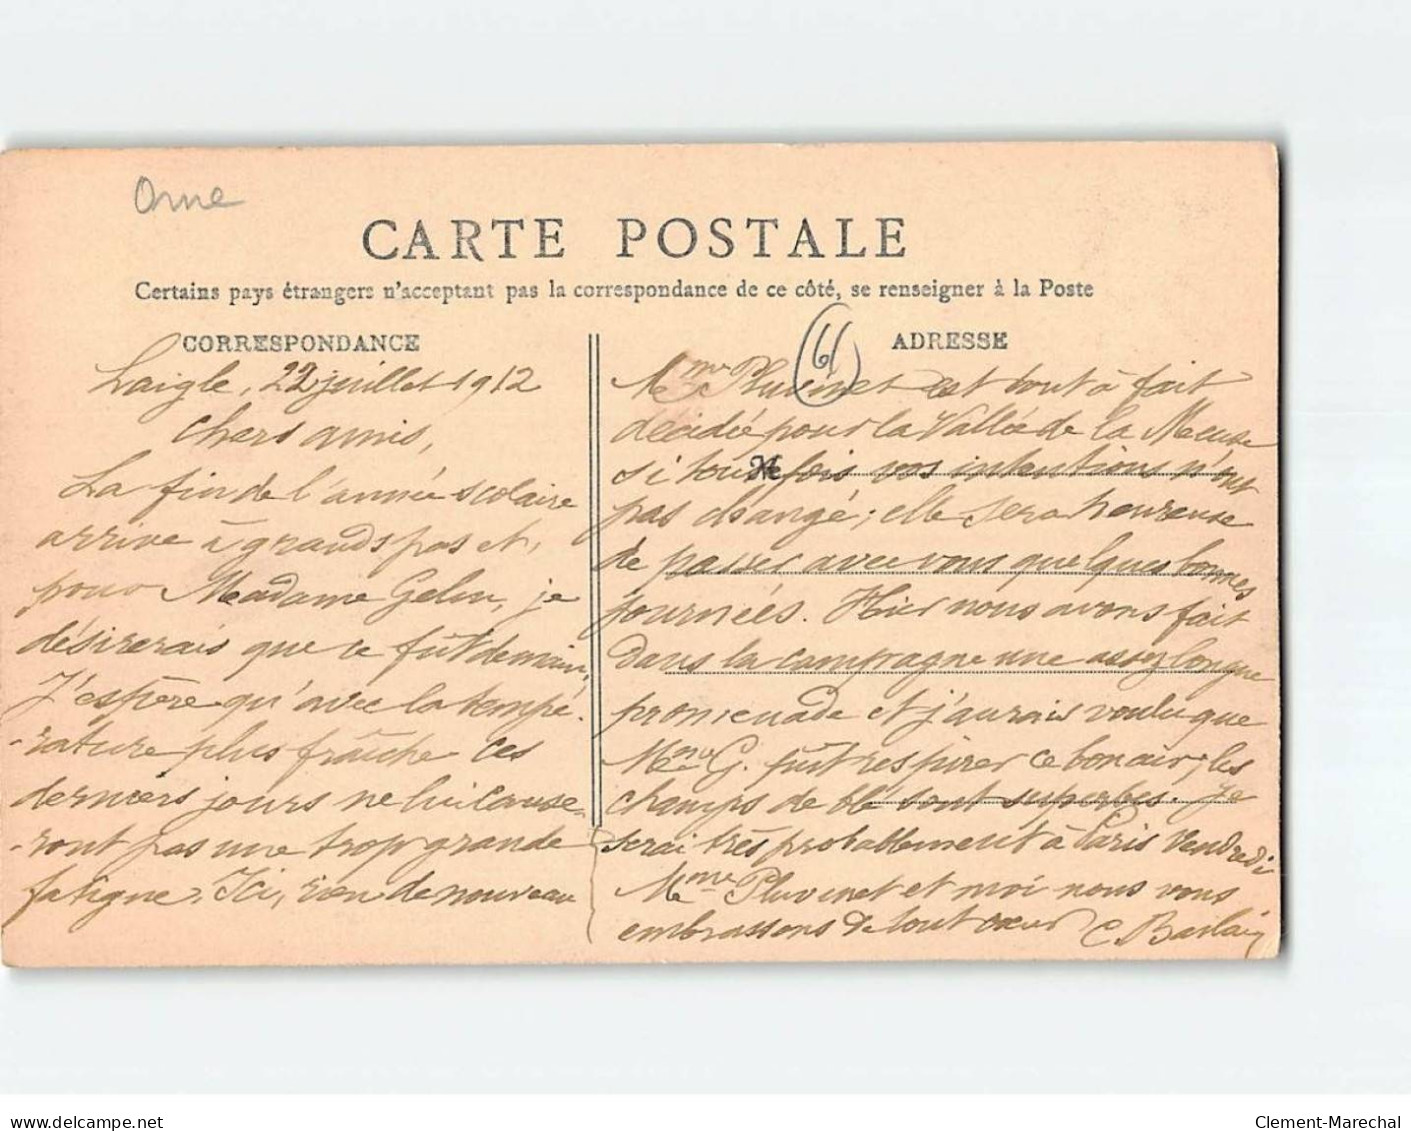 Orne
CARTE POSTALE
Certains pays étrangers n'acceptant pas la correspondance de ce côté, se renseigner à la Poste
CORRESPONDANCE
Laigle, 22 juillet 1912
Chers amis,
La fin de l'année scolaire
arrive à grands pas et,
pour Madame Gelin, je
désirerais que ce fût demain.
J'espère qu'avec la tempé-
-rature plus fraîche ces
derniers jours ne lui cause-
-ront pas une trop grande
fatigue. Ici, rien de nouveau
61
ADRESSE
Mme Pluvinet est tout à fait
décidée pour la Vallée de la Meuse
si toutefois vos intentions n'ont
pas changé; elle sera heureuse
de passer avec vous quelques bonnes
journées. Hier nous avons fait
dans la campagne une assez longue
promenade et j'aurais voulu que
Mme G. fût respirer ce bon air; les
champs de blé sont superbes. Je
serai très probablement à Paris Vendredi
Mme Pluvinet et moi nous vous
embrassons de tout coeur C. Barlain
www.delcampe.net
Clement-Marechal